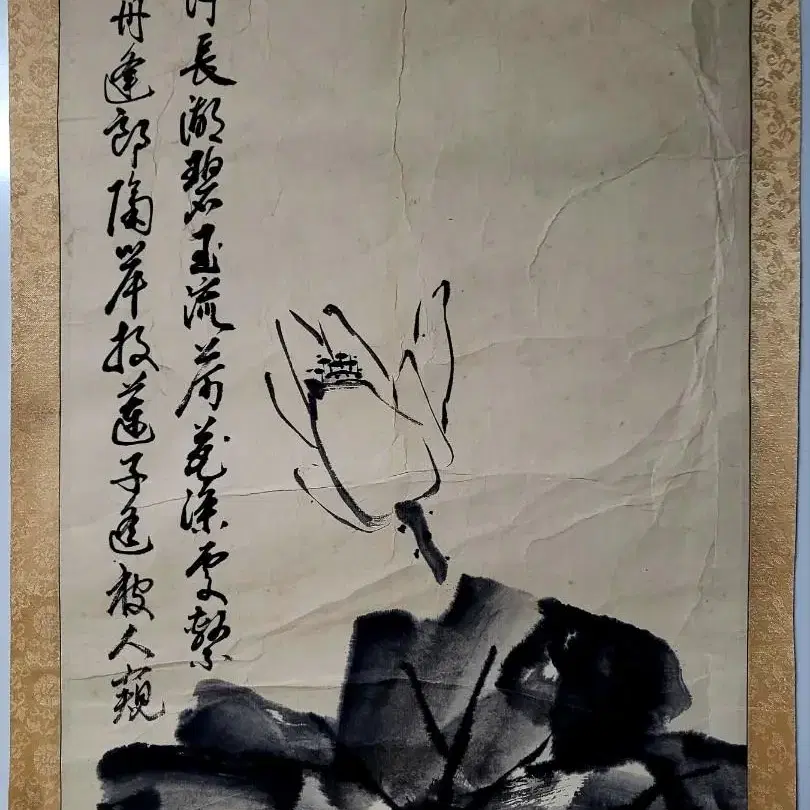 長湖碧玉流荷花深處繫
舟逢郎隔岸投蓮子遙被人窺